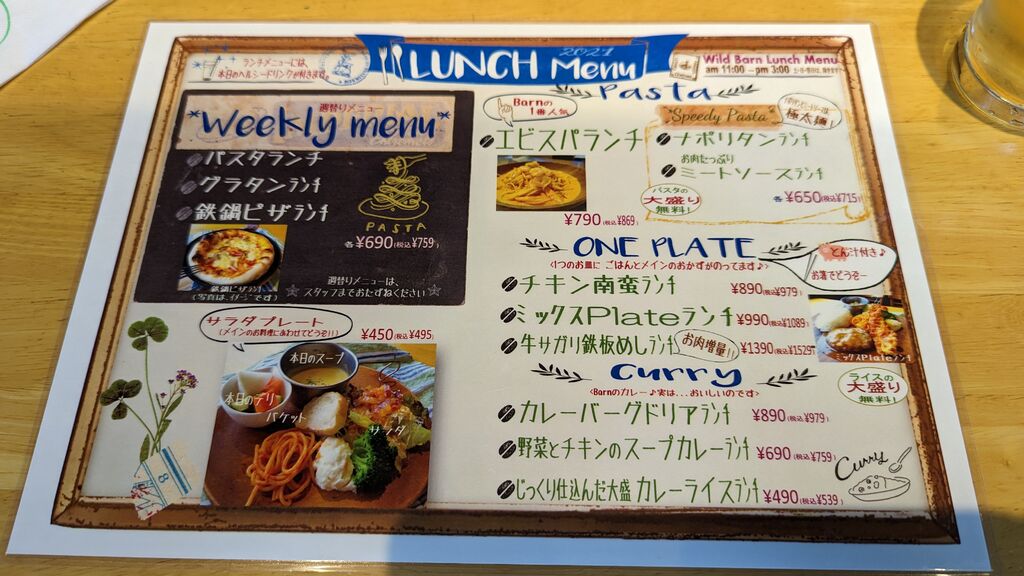 ランチメニューには、
本日のヘルシードリンクが付きます。
LUNCH 2021 Menu
Wild Barn Lunch Menu
am 11:00 ~ pm 3:00
週替りメニュー
Weekly menu
パスタランチ
グラタンランチ
鉄鍋ピザランチ
PASTA
各¥690(税込¥759)
鉄鍋ピザランチ
(写真は、イメージです)
週替りメニューは、
スタッフまでおたずねください
サラダプレート
(メインのお料理にあわせてどうぞ!!)
¥450(税込¥495)
本日のスープ
本日のデリ
バケット
サラダ
Pasta
Barnの
1番人気
エビスパランチ
¥790(税込¥869)
Speedy Pasta
極太麺!
ナポリタンランチ
お肉たっぷり
ミートソースランチ
パスタの
大盛り
無料!
各¥650(税込¥715)
ONE PLATE
(1つのお皿に ごはんとメインのおかずがのってます♪)
とん汁付き♪
お箸でどうぞー
チキン南蛮ランチ
¥890(税込¥979)
ミックスPlateランチ
¥990(税込¥1089)
牛サガリ鉄板めしランチ
お肉増量!!
¥1390(税込¥1529)
ミックスPlateランチ
Curry
<Barnのカレー♪実は...おいしいのです>
ライスの
大盛り
無料!
カレーバーグドリアランチ
¥890(税込¥979)
野菜とチキンのスープカレーランチ
¥690(税込¥759)
じっくり仕込んだ大盛 カレーライスランチ
¥490(税込¥539)
Curry